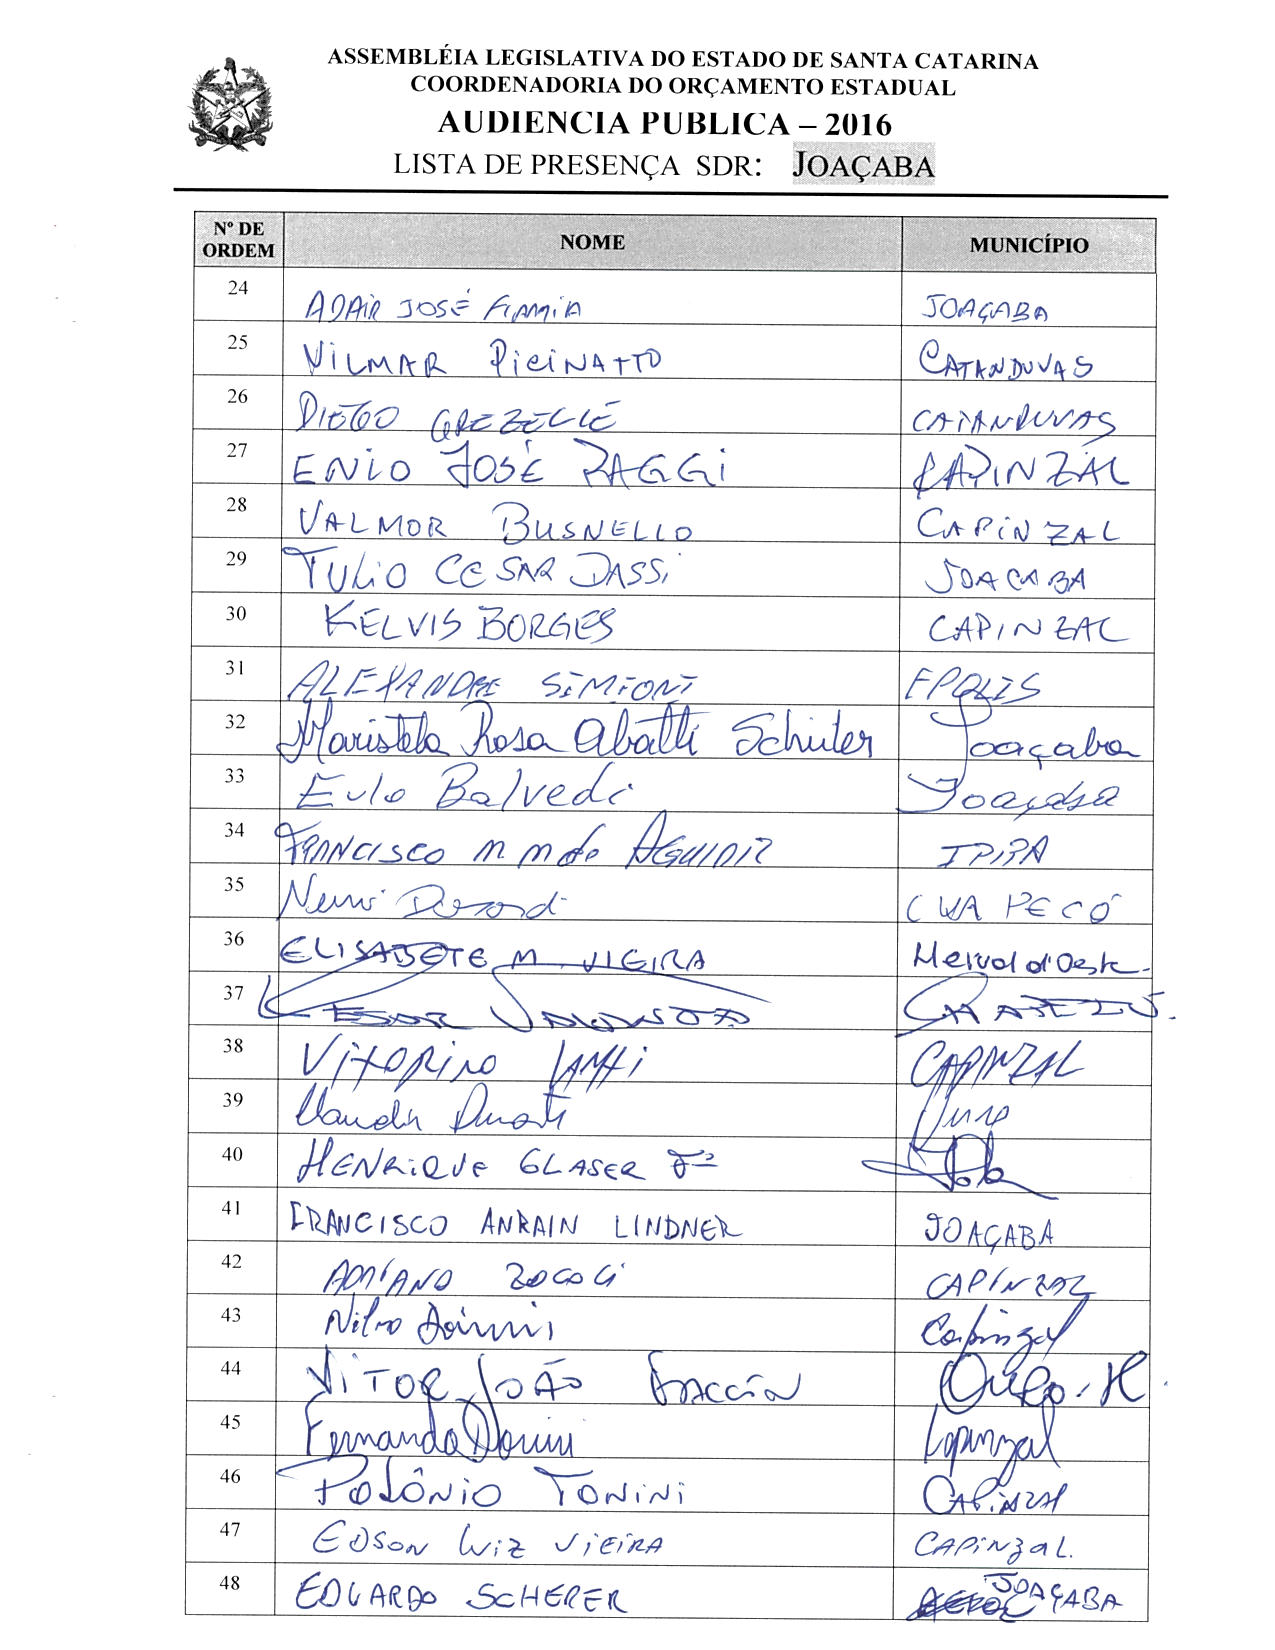 ASSEMBLÉIA LEGISLATIVA DO ESTADO DE SANTA CATARINA
COORDENADORIA DO ORÇAMENTO ESTADUAL
AUDIENCIA PUBLICA – 2016
LISTA DE PRESENÇA SDR: JOAÇABA
Nº DE ORDEM NOME MUNICÍPIO
24 ADAIR JOSÉ JOAÇABA
25 VILMAR PICINATTO CATANDUVAS
26 DIEGO GREZELLE CATANDUVAS
27 ENIO JOSÉ ZAGGI CAPINZAL
28 VALMOR BUSNELLO CAPINZAL
29 TULIO CESAR DASSI JOACABA
30 KELVIS BORGES CAPINZAL
31 ALEXANDRE SIMIONI FPOLIS
32 Maristela Rosa Abatti Schuler Joaçaba
33 Eulo Balvedi Joaçaba
34 FRANCISCO M. AGUIAR IPIRA
35 CHAPECÓ
36 ELISABETE M. VIEIRA Herval d'Oeste
37 CESAR CHAPECÓ
38 VITORINO CAPINZAL
39
40 HENRIQUE GLASER Fº
41 FRANCISCO ANRAIN LINDNER JOAÇABA
42 ADRIANO ZOCOLI CAPINZAL
43 Capinzal
44 VITOR JOÃO FACCIN Ouro
45 Fernanda Capinzal
46 POLÔNIO TONINI CAPINZAL
47 EDSON LUIZ VIEIRA CAPINZAL.
48 EDUARDO SCHERER JOAÇABA